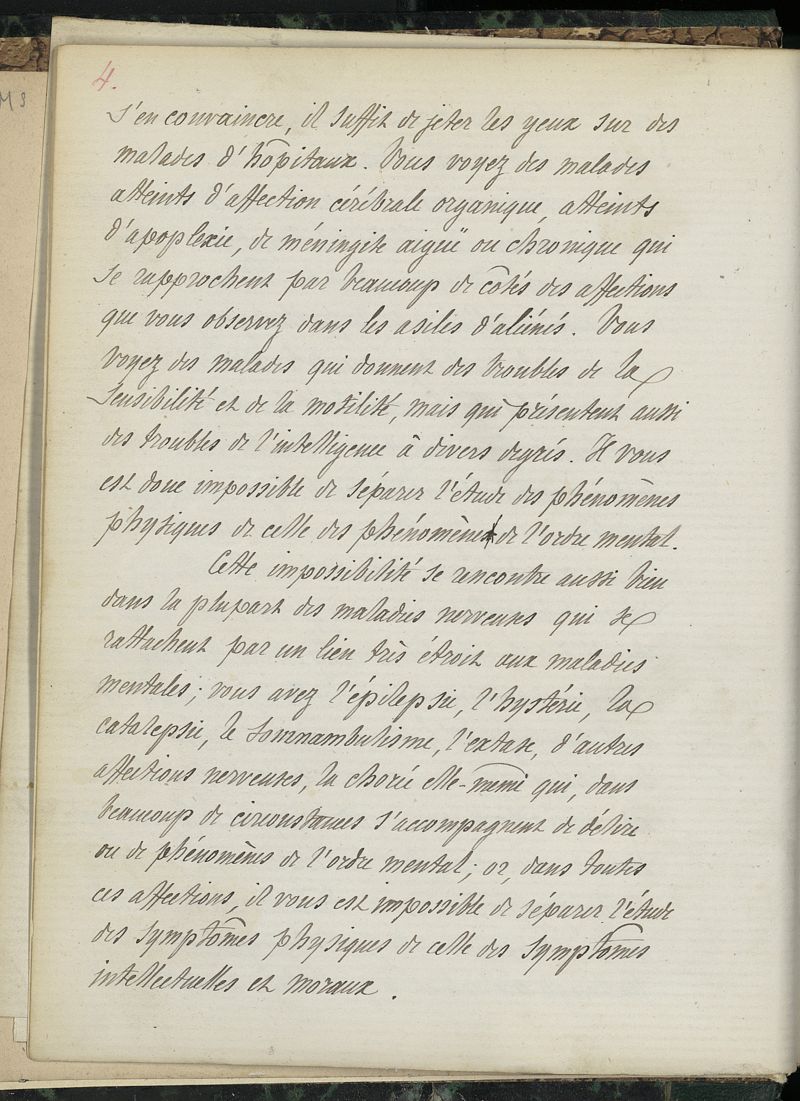 4.
s'en convaincre, il suffit de jeter les yeux sur des
malades d'hôpitaux. Vous voyez des malades
atteints d'affection cérébrale organique, atteints
d'apoplexie, de méningite aiguë ou chronique qui
se rapprochent par beaucoup de côtés des affections
que vous observez dans les asiles d'aliénés. Vous
voyez des malades qui donnent des troubles de la
sensibilité et de la motilité, mais qui présentent aussi
des troubles de l'intelligence à divers degrés. Il vous
est donc impossible de séparer l'étude des phénomènes
physiques de celle des phénomènes de l'ordre mental.
Cette impossibilité se rencontre aussi bien
dans la plupart des maladies nerveuses qui se
rattachent par un lien très étroit aux maladies
mentales; vous avez l'épilepsie, l'hystérie, la
catalepsie, le somnambulisme, l'extase, d'autres
affections nerveuses, la chorée elle-même qui, dans
beaucoup de circonstances s'accompagnent de délire
ou de phénomènes de l'ordre mental; or, dans toutes
ces affections, il vous est impossible de séparer l'étude
des symptômes physiques de celle des symptômes
intellectuelles et moraux.